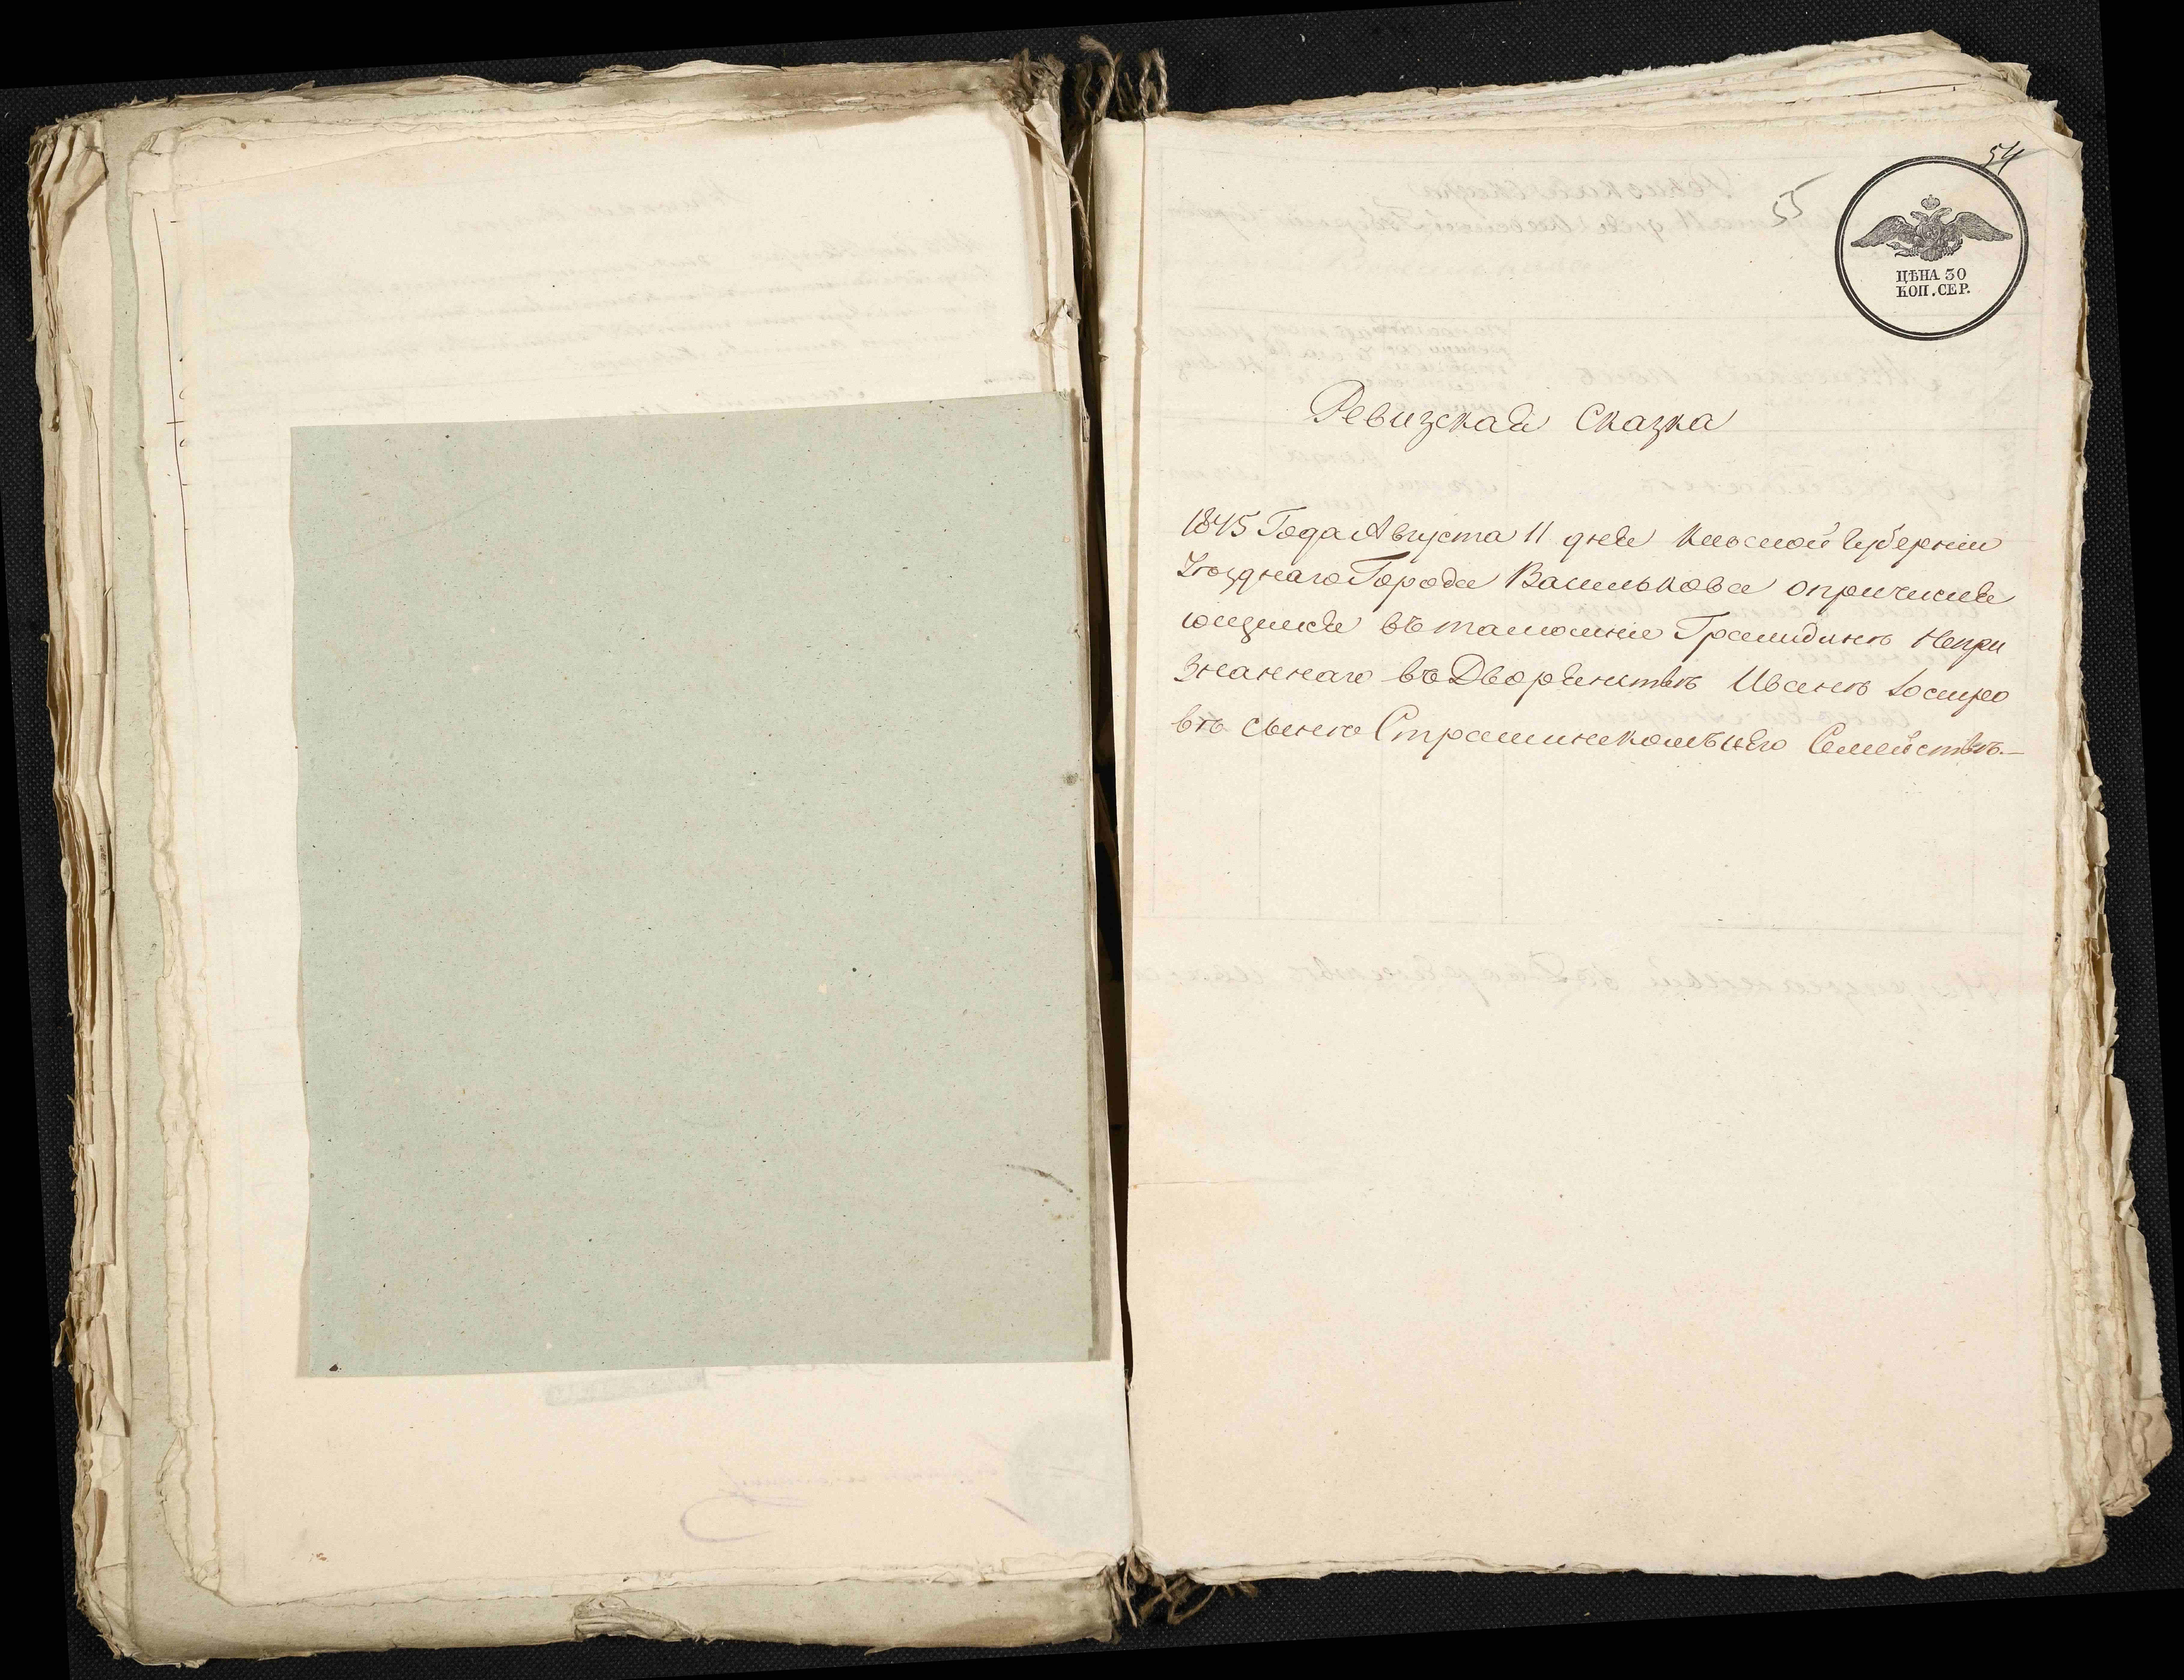 54
55
ЦѢНА 30
КОП. СЕР.
Ревизская Сказка
1845 Года Августа 11 дня Киевской Губерніи
Уѣзднаго Города Василькова о причисля
ющимся въ тамошніе Граждане Непри
знаннаго въ Дворянствѣ Иванѣ Іосифо
вѣ сынѣ и Его Семействѣ.—